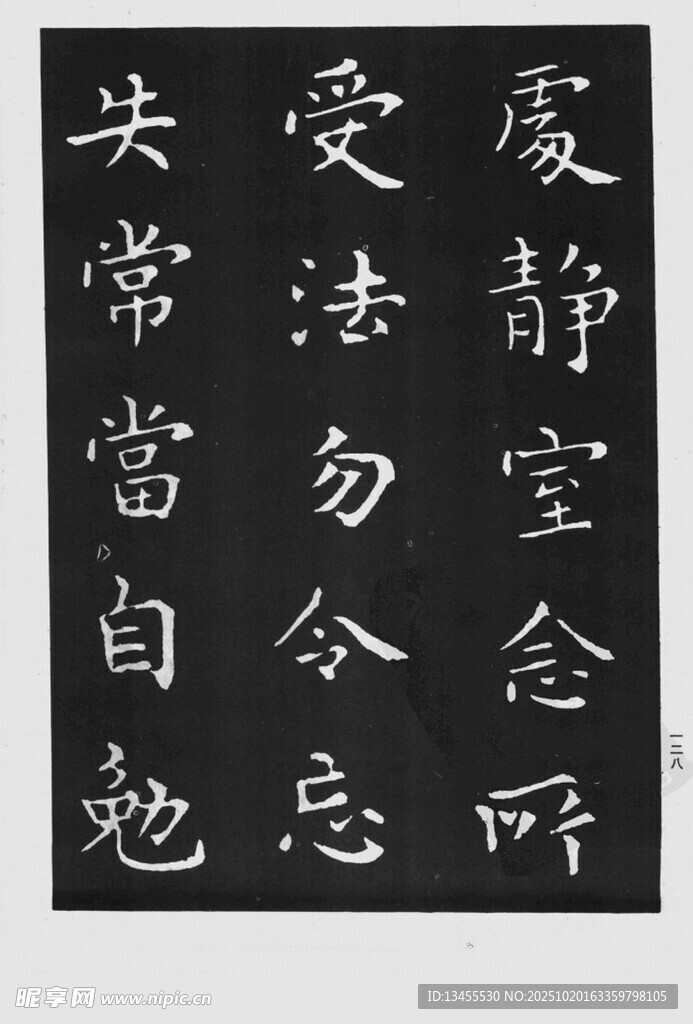 處静室念所
受法勿令忘
失常當自勉
一二八
昵享网 www.nipic.cn
ID:13455530 NO:20251020163359798105